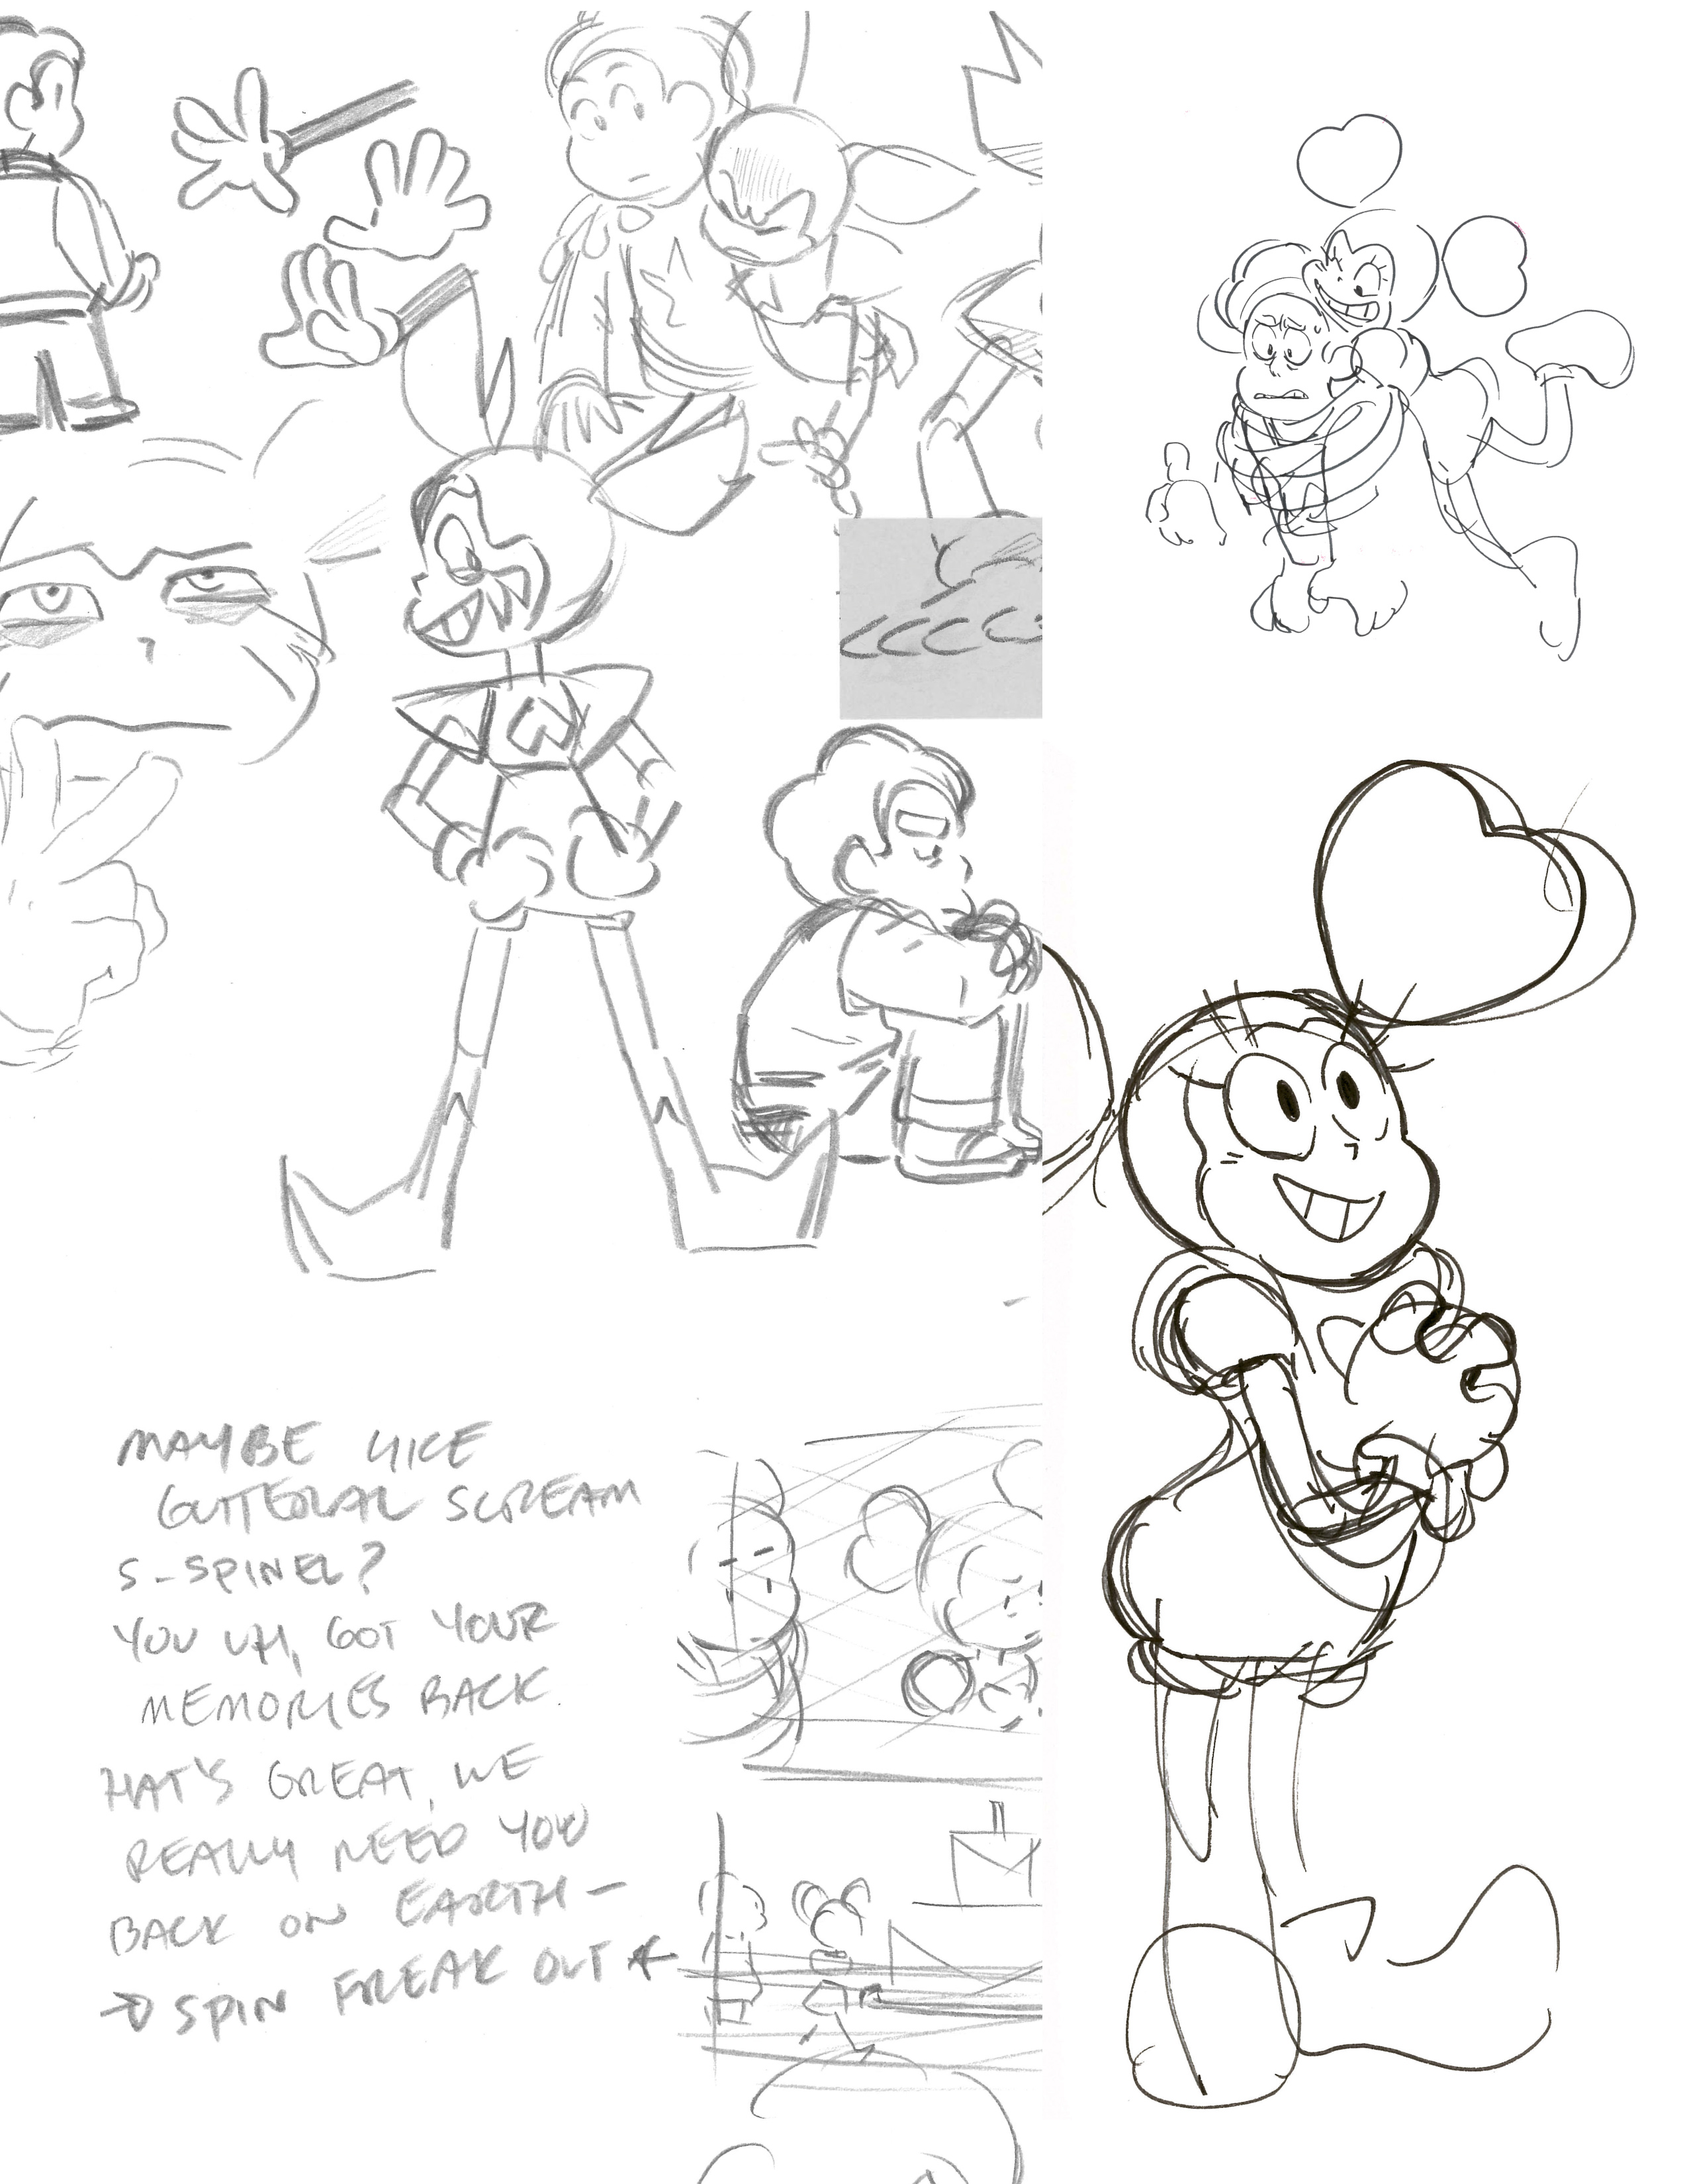 MAYBE LIKE
GUTTERAL SCREAM
S-SPINEL?
YOU UH, GOT YOUR
MEMORIES BACK.
HAT'S GREAT, WE
REALLY NEED YOU
BACK ON EARTH-
→ SPIN FREAK OUT ←